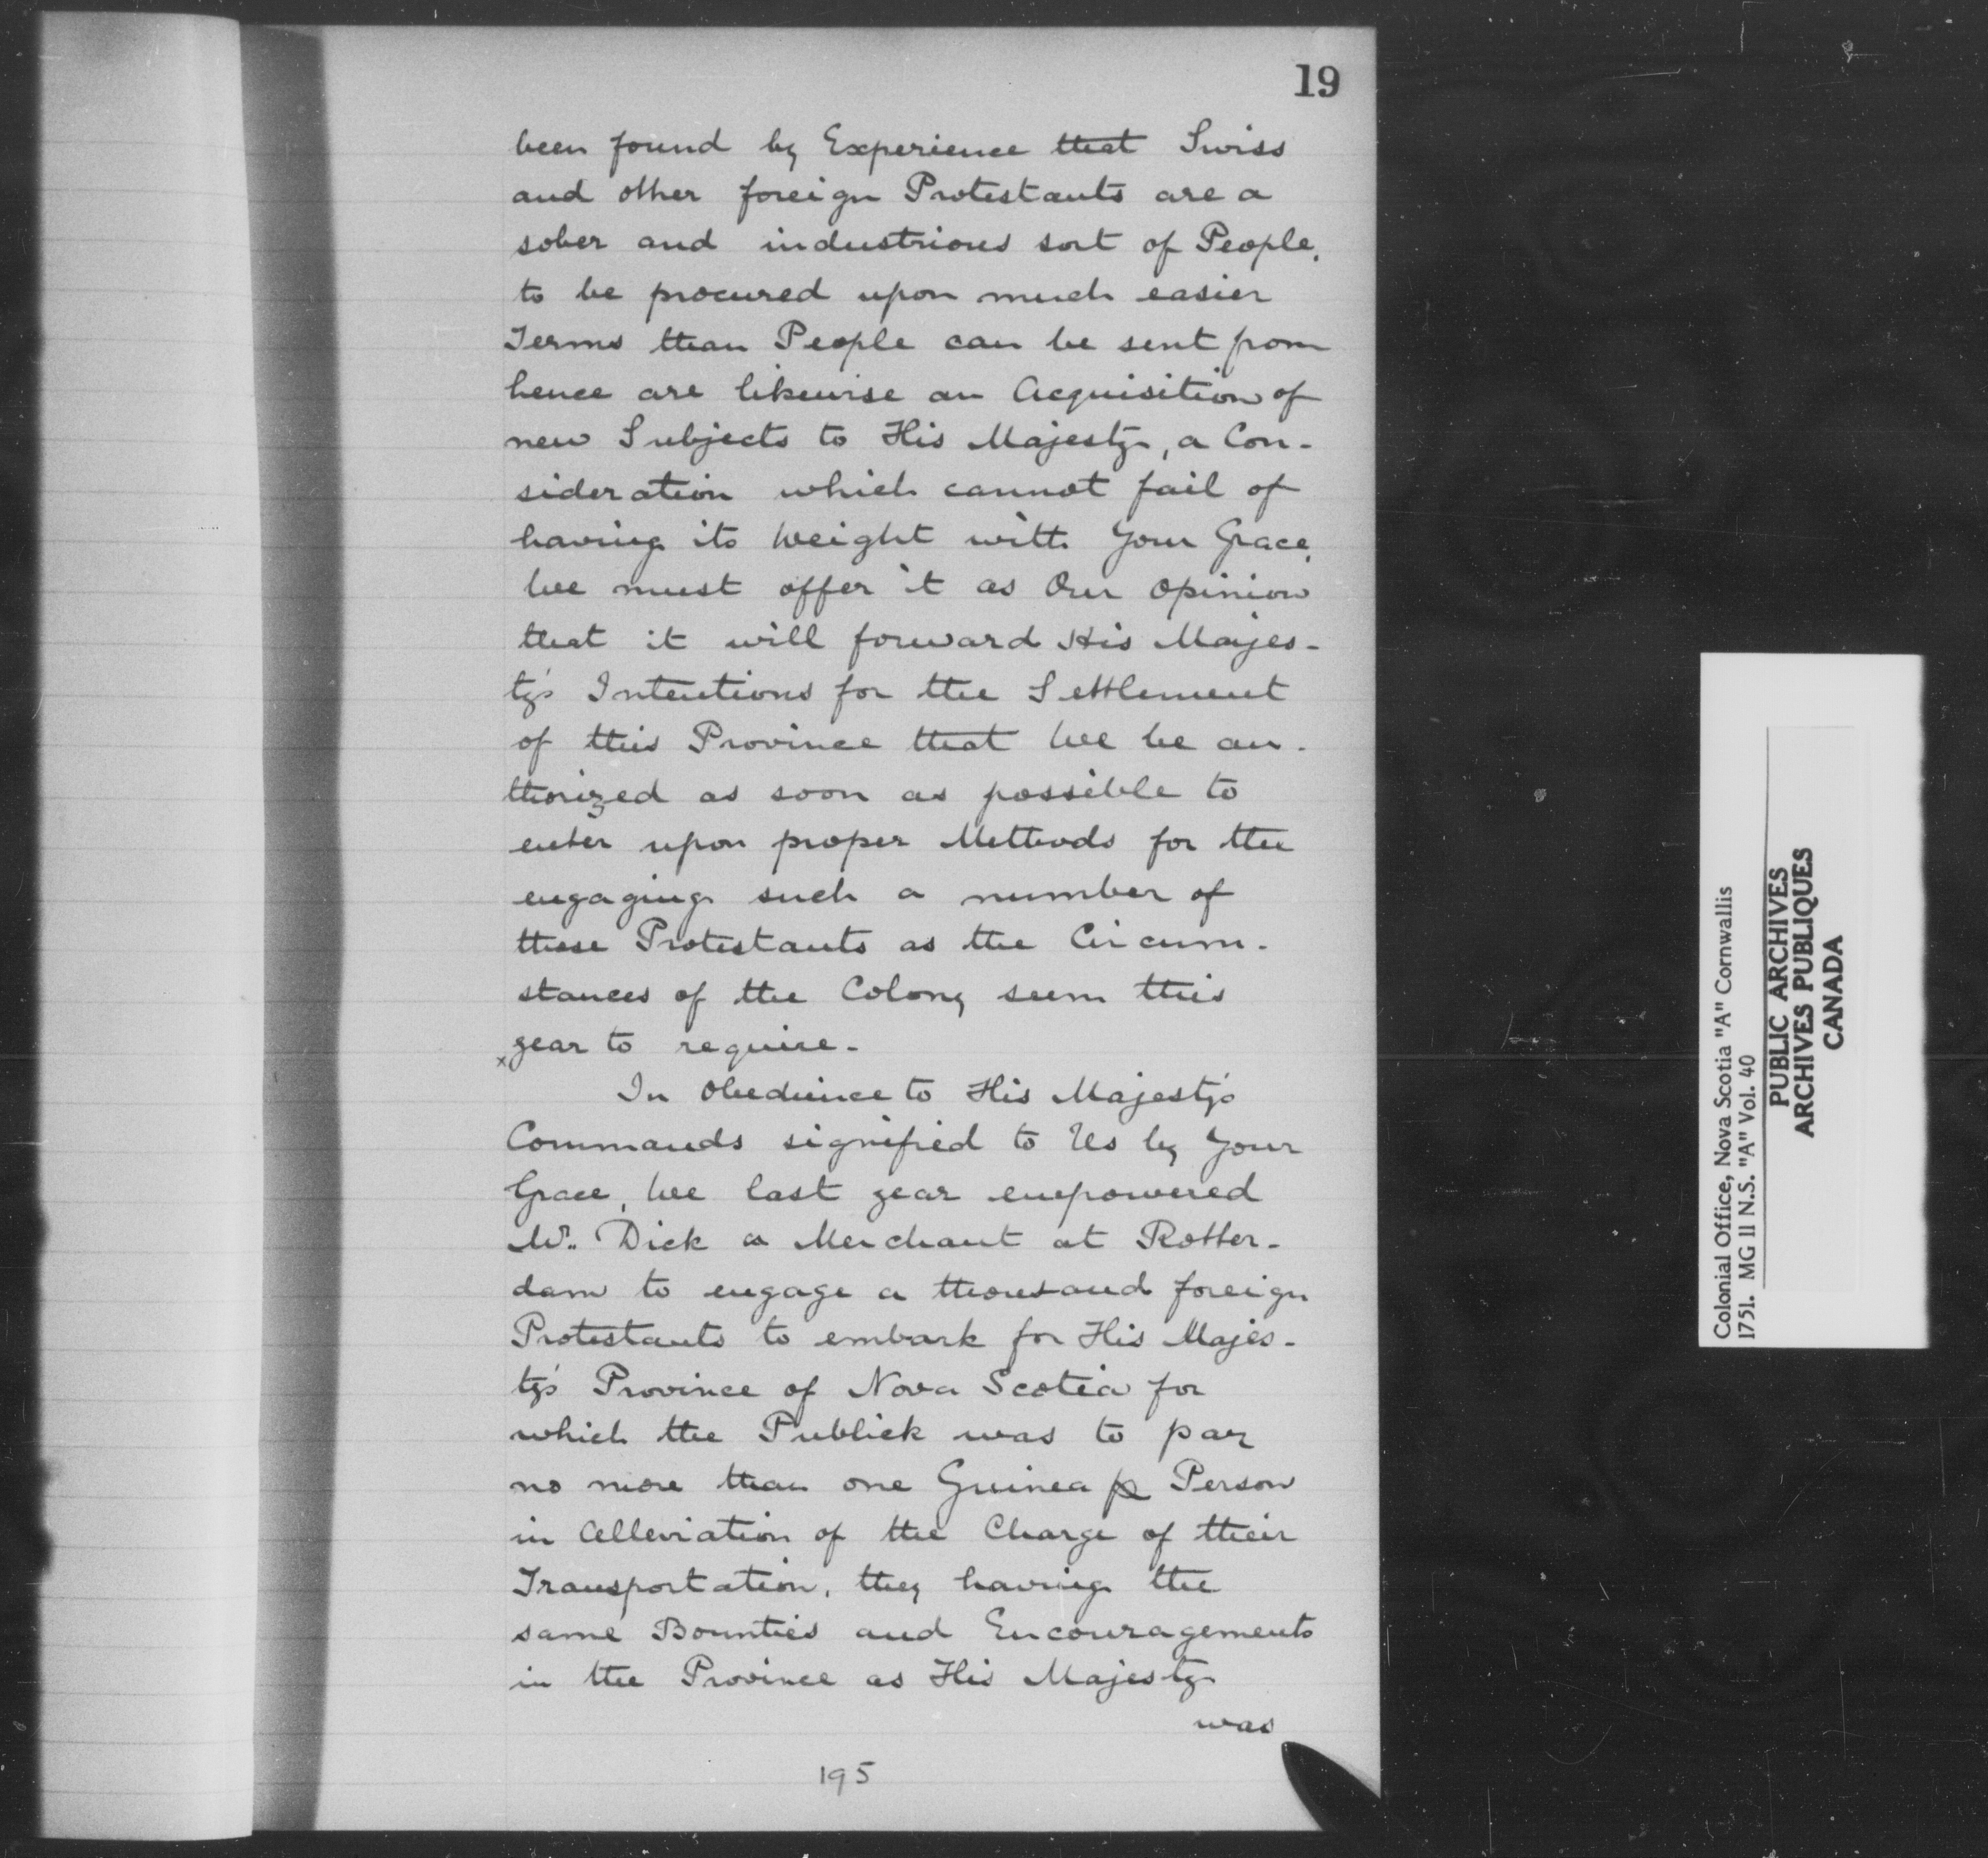 19
been found by Experience that Swiss
and other foreign Protestants are a
sober and industrious sort of People,
to be procured upon much easier
Terms than People can be sent from
hence are likewise an Acquisition of
new Subjects to His Majesty, a Con-
sideration which cannot fail of
having its Weight with Your Grace,
We must offer it as Our Opinion
that it will forward His Majes-
ty's Intentions for the Settlement
of this Province that We be au-
thorized as soon as possible to
enter upon proper Methods for the
engaging such a number of
these Protestants as the Circum-
stances of the Colony seem this
x year to require.
In Obedience to His Majesty's
Commands signified to Us by Your
Grace, We last year empowered
Mr. Dick a Merchant at Rotter-
dam to engage a thousand foreign
Protestants to embark for His Majes-
ty's Province of Nova Scotia for
which the Publick was to pay
no more than one Guinea ⅌ Person
in Alleviation of the Charge of their
Transportation, they having the
same Bounties and Encouragements
in the Province as His Majesty
was
195
Colonial Office, Nova Scotia "A" Cornwallis
1751. MG 11 N.S. "A" Vol. 40
PUBLIC ARCHIVES
ARCHIVES PUBLIQUES
CANADA